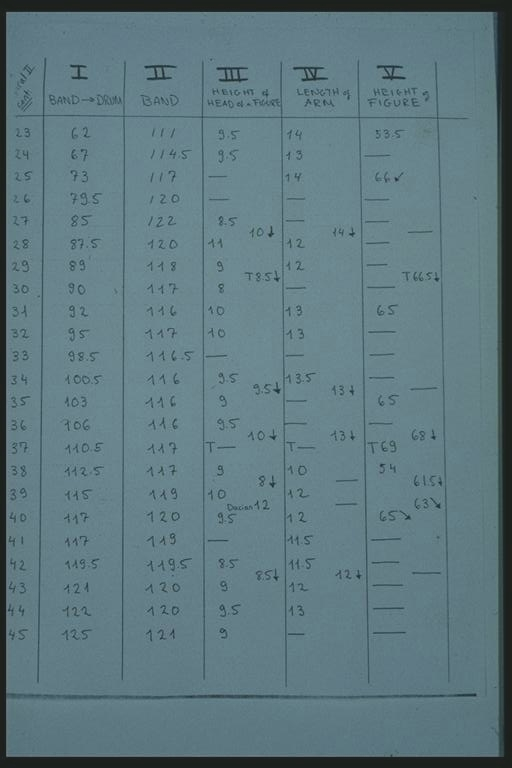 I II III IV V
BAND → DRUM BAND HEIGHT of HEAD of a FIGURE LENGTH of ARM HEIGHT of FIGURE
23 62 111 9.5 14 53.5
24 67 114.5 9.5 13 —
25 73 117 — 14 66↙
26 79.5 120 — — —
27 85 122 8.5 — —
10↓ 14↓ —
28 87.5 120 11 12 —
29 89 118 9 12 —
T8.5↓ T66.5↓
30 90 117 8 — —
31 92 116 10 13 65
32 95 117 10 13 —
33 98.5 116.5 — — —
34 100.5 116 9.5 13.5 —
9.5↓ 13↓ —
35 103 116 9 — 65
36 106 116 9.5 — —
10↓ 13↓ 68↓
37 110.5 117 T— T— T69
38 112.5 117 9 10 54
8↓ — 61.5↓
39 115 119 10 12
Dacian 12 — 63↘
40 117 120 9.5 12 65↘
41 117 119 — 11.5 —
42 119.5 119.5 8.5 11.5 —
8.5↓ 12↓ —
43 121 120 9 12 —
44 122 120 9.5 13 —
45 125 121 9 — —